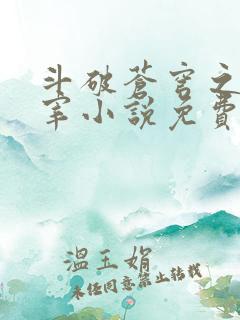 斗破蒼穹之
宰小說免費
溫玉娟
未经同意禁止转载